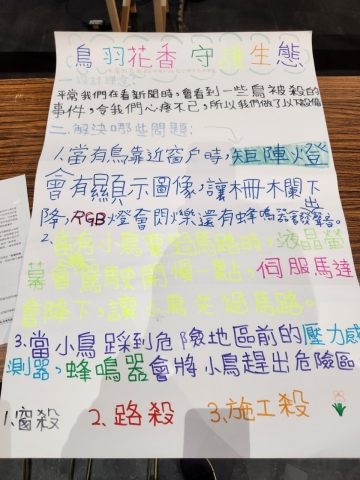 鳥羽花香守護生態
一.設計理念:
平常我們在看新聞時,會看到一些鳥被殺的
事件,令我們心痛不已,所以我們做了以下設備
二.解決哪些問題:
1.當有鳥靠近窗戶時,矩陣燈
會有顯示圖像,讓柵木闌下
降,RGB燈會閃爍還有蜂鳴器會發出聲音。
2.當有小鳥要過馬路時,液晶螢
幕會駕駛開慢一點,伺服馬達
會降下,讓小鳥先過馬路。
3.當小鳥踩到危險地區前的壓力感
測器,蜂鳴器會將小鳥趕出危險區
1.窗殺 2.路殺 3.施工殺